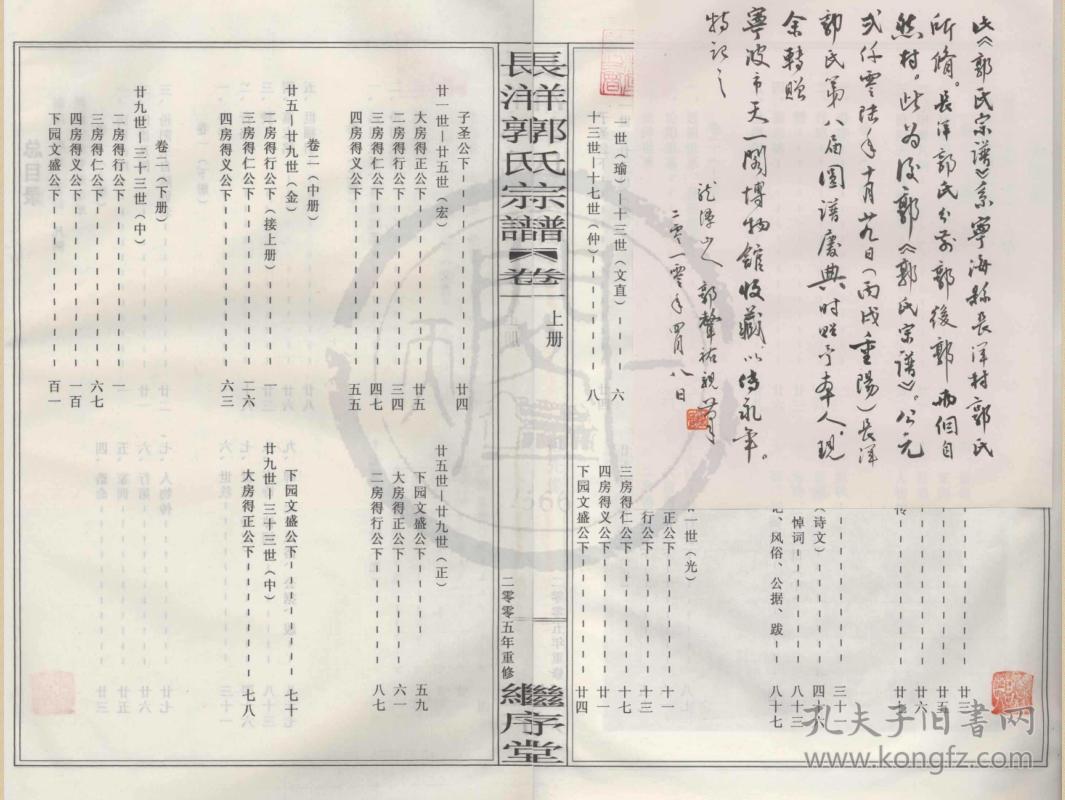 此《郭氏宗谱》系宁海县長洋村郭氏
所脩。長洋郭氏分前郭後郭兩個自
然村。此为後郭《郭氏宗谱》。公元
弍仟零陆年十月廿九日(丙戌重陽)長洋
郭氏第八届圆谱慶典时赠予本人,现
余轉贈
寧波市天一閣博物館收藏以传永年。
特記之
龙潭山人 郭聲祐
二零一零年四月八日
廿三
廿五
廿六
廿七
三十一
(诗文) 四十六
悼词 八十三
记、风俗、公据、跋 八十七
一世(光)
正公下 十一
行公下 十三
三房得仁公下 十七
四房得义公下 廿一
下园文盛公下 廿四
一世(瑜)—十三世(文直) 六
十三世—十七世(仲) 八
長洋郭氏宗譜 卷一 上册
二零零五年重修
繼序堂
子圣公下 廿四
廿一世—廿五世(宏)
大房得正公下 廿五
二房得行公下 三四
三房得仁公下 四七
四房得义公下 五五
廿五世—廿九世(正)
下园文盛公下 五九
大房得正公下 六一
二房得行公下 八七
卷二(中册)
廿五—廿九世(金)
二房得行公下(接上册) 一
三房得仁公下 二六
四房得义公下 六三
下园文盛公下 七十
廿九世—三十三世(中)
大房得正公下 七八
卷二(下册)
廿九世—三十三世(中)
二房得行公下 一
三房得仁公下 六七
四房得义公下 一百
下园文盛公下 百一
孔夫子旧书网
www.kongfz.com